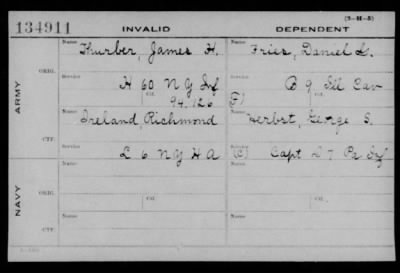 (3-11-5)
134911 INVALID DEPENDENT
Name Name
Thurber, James H. Fries, Daniel L.
ORIG. Service Service
H 60 N Y Inf B 9 Ill Cav
Of. Of.
94.126 (F)
ARMY
Name Name
Ireland, Richmond Herbst, George S.
CTF. Service Service
L 6 N Y H A (C) Capt D 7 Pa Inf
Name Name
ORIG. Service Service
Of. Of.
NAVY
Name Name
CTF. Service Service